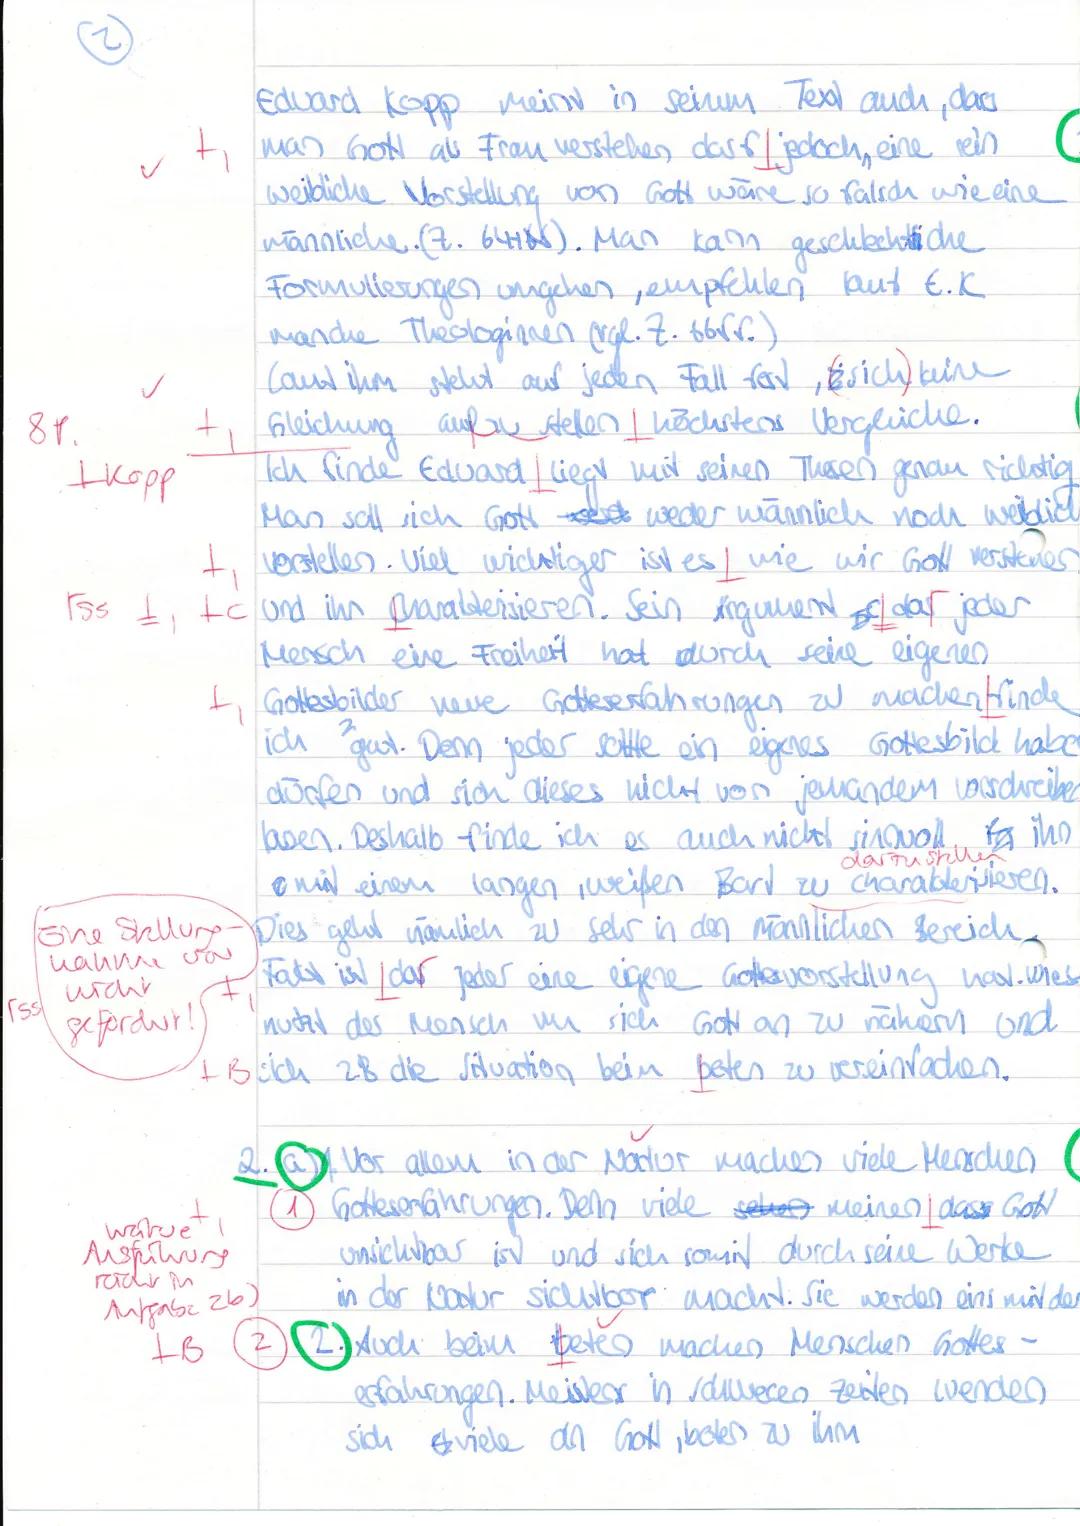 2
Edward Kopp meint in seinem Text auch, dass
man Gott als Frau verstehen darf jedoch, eine rein
weibliche Vorstellung von Gott wäre so falsch wie eine
männliche. (Z. 64ff). Man kann geschlechtliche
Formulierungen umgehen, empfehlen laut E.K
manche Theologinnen (vgl. Z. 66ff.)
Laut ihm steht auf jeden Fall fest, (sich) keine
8P. Gleichung aufzustellen höchstens Vergleiche.
⊥Kopp Ich finde Edward liegt mit seinen Thesen genau richtig
Man soll sich Gott weder männlich noch weiblich
vorstellen. Viel wichtiger ist es wie wir Gott verstehen
rss ⊥C und ihn Charakterisieren. Sein Argument das jeder
Mensch eine Freiheit hat durch seine eigenen
Gottesbilder neue Gotteserfahrungen zu machen finde
ich gut. Denn jeder sollte ein eigenes Gottesbild haben
dürfen und sich dieses nicht von jemandem vorschreiben
lassen. Deshalb finde ich es auch nicht sinnvoll ihn
darzustellen
mit einem langen, weißen Bart zu charakterisieren.
Eine Stellung-
nahme war
nicht
gefordert!
Dies geht nämlich zu sehr in den Männlichen Bereich.
rss Fakt ist das jeder eine eigene Gottesvorstellung hat.
nutzt der Mensch um sich Gott an zu nähern und
⊥B sich zB die Situation beim beten zu vereinfachen.
2. a) 1. Vor allem in der Natur machen viele Menschen
1 Gotteserfahrungen. Denn viele sehen meinen dass Gott
weitere
Ausführung
nicht in
Aufgabe 2b)
unsichtbar ist und sich somit durch seine Werke
in der Natur sichtbar macht. Sie werden eins mit der
⊥B 2 2. Auch beim beten machen Menschen Gottes-
erfahrungen. Meistens in schweren Zeiten wenden
sich viele an Gott, beten zu ihm